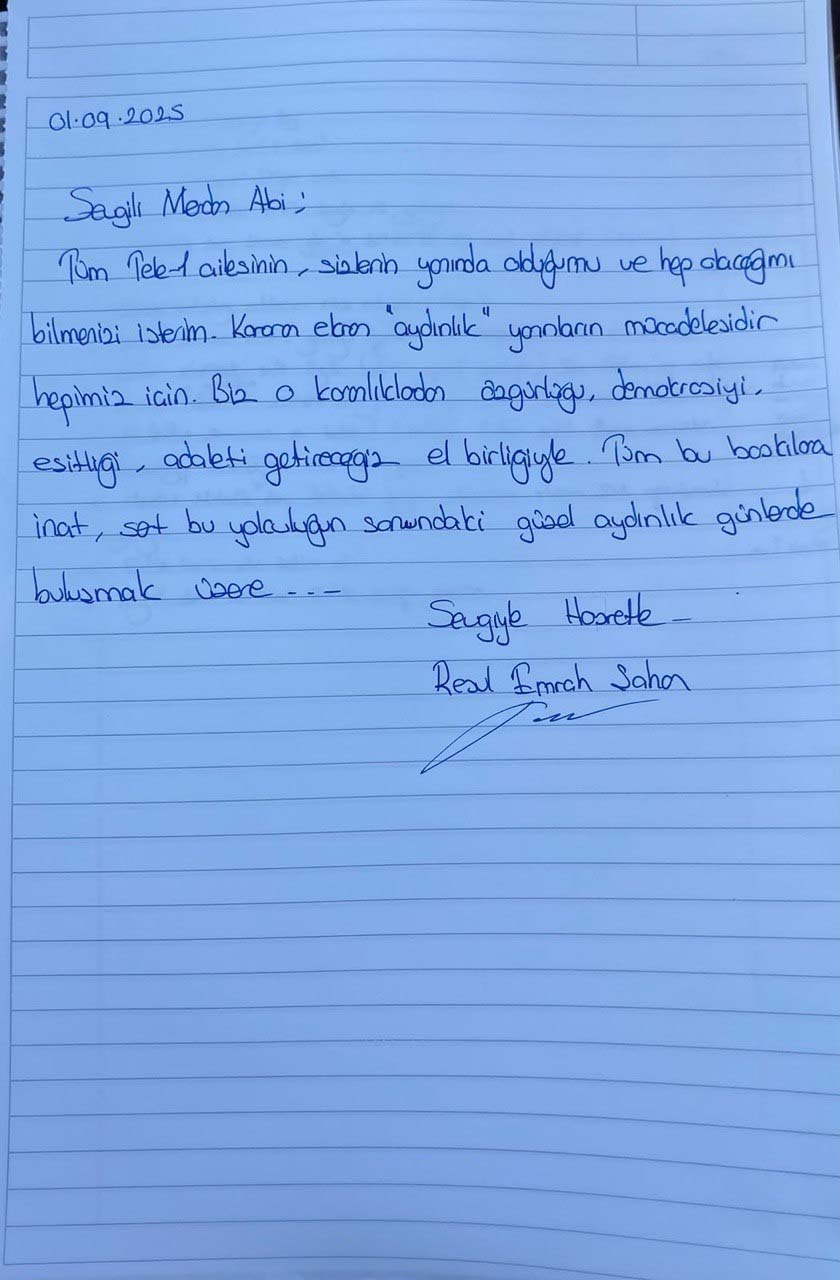 01.09.2025
Saygılı Merdan Abi;
Tüm Tele-1 ailesinin, sizlerin yanında olduğumu ve hep olacağımı
bilmenizi isterim. Kararan ekran "aydınlık" yarınların mücadelesidir
hepimiz için. Biz o karanlıklardan özgürlüğü, demokrasiyi,
eşitliği, adaleti getireceğiz el birligiyle. Tüm bu baskılara
inat, bu yolculuğun sonundaki güzel aydınlık günlerde
buluşmak üzere ---
Sevgiyle Hasretle -
Resul Emrah Şahan